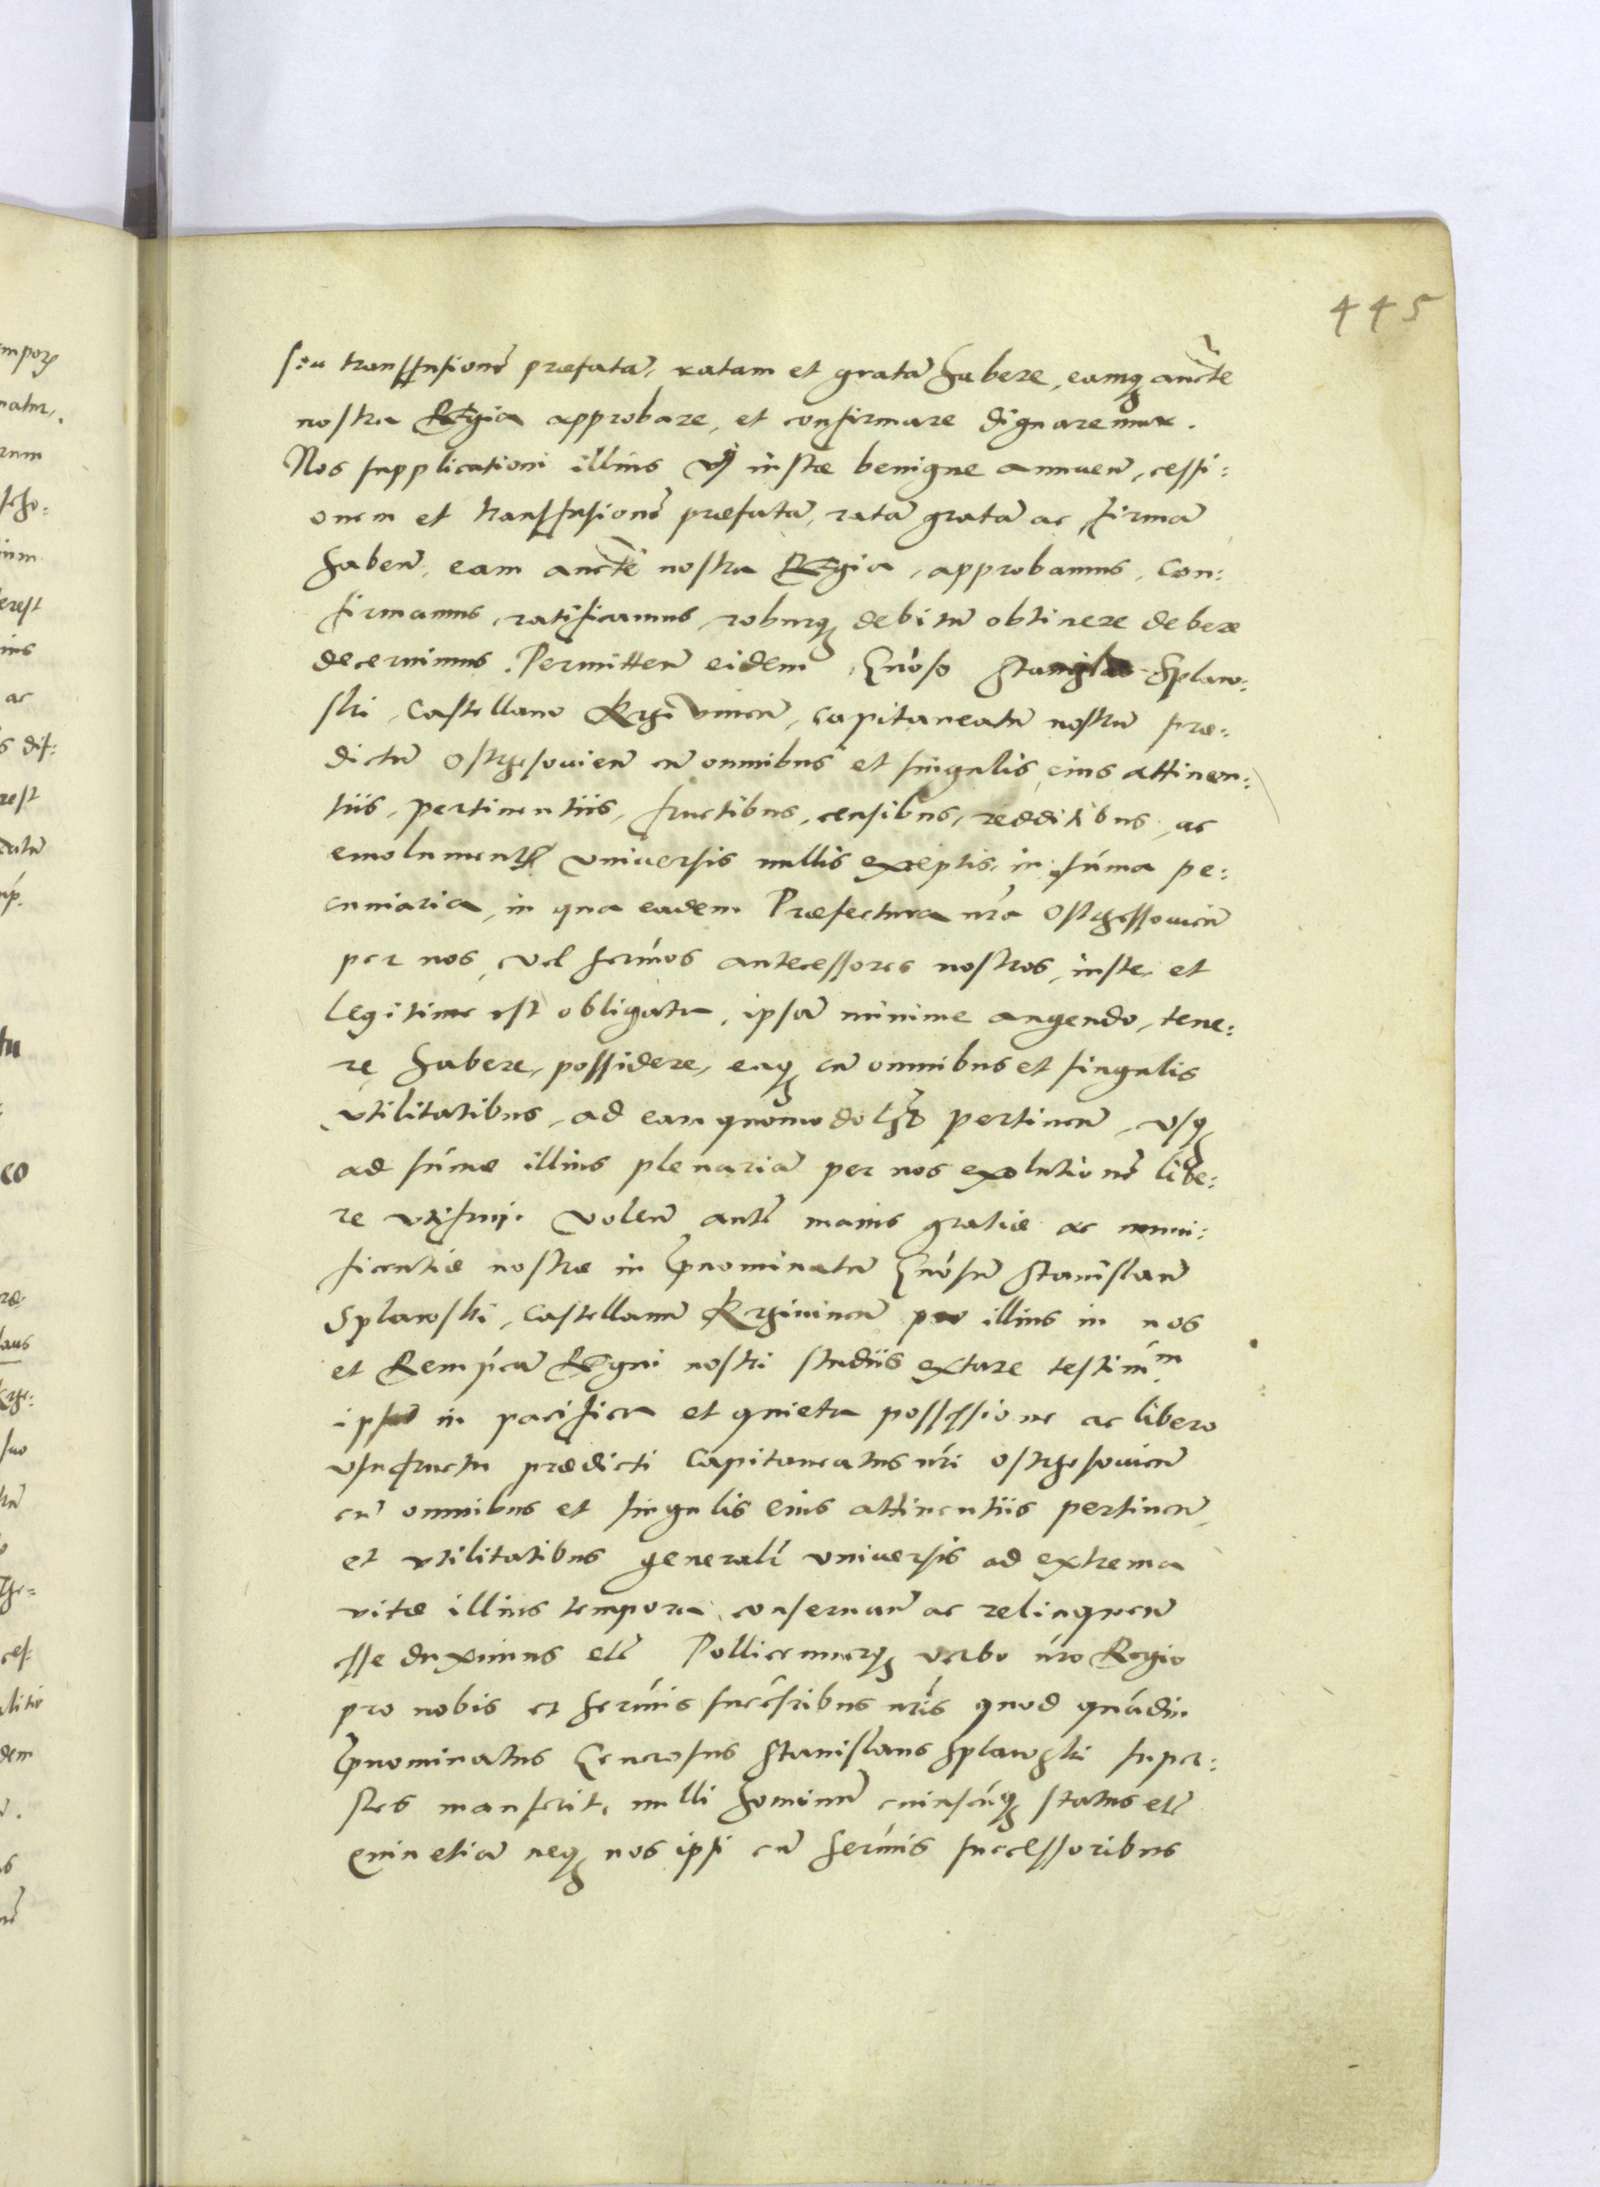 445
seu transfusionē præfatā, ratam et gratā habere, eamq; aucte
nostra Regia approbare, et confirmare dignaremur.
Nos supplicationi illius vti iustæ benigne annuen̄, cessi:
onem et transfusionē præfatā, ratā gratā ac firmā
haben̄, eam aucte nostra Regia, approbamus, con:
firmamus, ratificamus, roburq; debitū obtinere debere
decernimus. Permitten̄ eidem Gnōso Stanislao Splaw:
ski, Castellano Krzivinen̄, capitaneatū nostrū præ:
dictū Ostrzesouien̄ cū omnibus et singulis eius attinen:
tiis, pertinentiis, fructibus, censibus, redditibus, ac
emolumentis vniuersis nullis exceptis, in sūma pe:
cuniaria, in qua eadem Præfectura nrā Ostrzessouien̄
per nos, vel sermōs antecessores nostros, iuste et
legitime est obligata, ipsā minime augendo, tene:
re, habere, possidere, eaq; cū omnibus et singulis
vtilitatibus, ad eam quomodolibet pertinen̄, vsq;
ad sūmæ illius plenariā per nos exolutionē libe:
re vtifrui. Volen̄ autē maius gratiæ ac muni:
ficentiæ nostræ in prænominatū Gnōsum Stanislaū
Splawski, Castellanū Krzivinen̄ pro illius in nos
et Rempcā Regni nostri studiis extare testimm
ipsum in pacifica et quieta possessione ac libero
vsufructu prædicti Capitaneatus nrī Ostrzesouien̄
cū omnibus et singulis eius attinentiis pertinen̄,
et vtilitatibus generalr vniuersis ad extrema
vitæ illius tempora conseruan̄ ac relinquen̄
esse duximus etc Pollicemurq; verbo nrō Regio
pro nobis et sermīs succēsribus nrīs quod quādiu
prænominatus Generosus Stanislaus Splawski super:
stes manserit, nulli hominū cuiuscūq; status etc
Quin etiā neq; nos ipsi cū sermīs successoribus